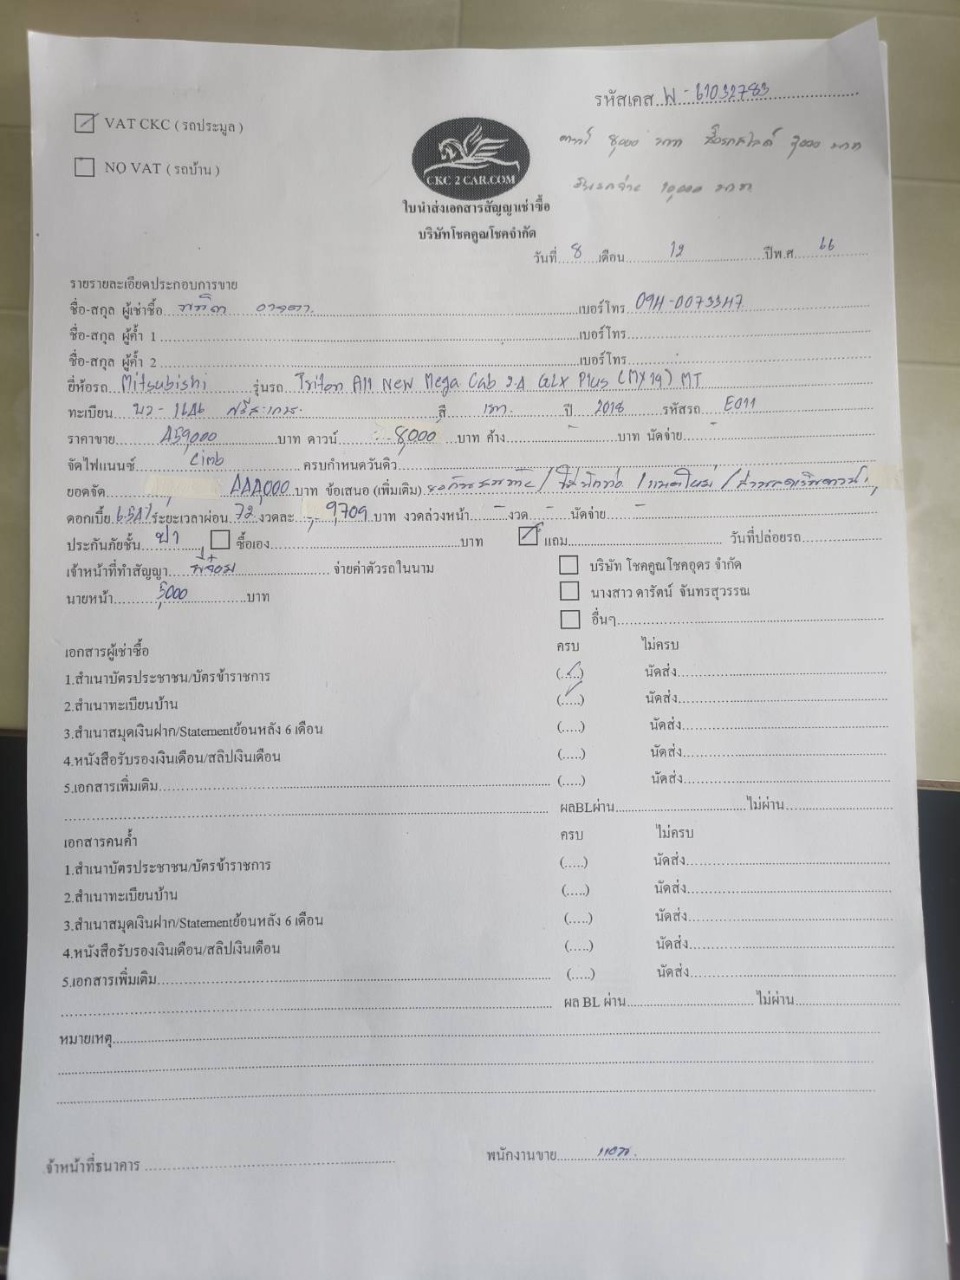 รหัสเคส W-61032783
VAT CKC ( รถประมูล )
ดาวน์ 8,000 บาท 7,000 บาท
NO VAT ( รถบ้าน )
CKC 2 CAR.COM
10,000 บาท
ใบนำส่งเอกสารสัญญาเช่าซื้อ
บริษัทโชคคูณโชคจำกัด
วันที่ 8 เดือน 12 ปีพ.ศ. 66
รายรายละเอียดประกอบการขาย
ชื่อ-สกุล ผู้เช่าซื้อ เบอร์โทร 094-0073347
ชื่อ-สกุล ผู้ค้ำ 1 เบอร์โทร
ชื่อ-สกุล ผู้ค้ำ 2 เบอร์โทร
ยี่ห้อรถ Mitsubishi รุ่นรถ Triton All New Mega Cab 2.4 GLX Plus (MY19) MT
ทะเบียน ศรีสะเกษ สี เทา ปี 2018 รหัสรถ E011
ราคาขาย 459,000 บาท ดาวน์ 8,000 บาท ค้าง - บาท นัดจ่าย -
จัดไฟแนนซ์ Cimb ครบกำหนดวันคิว
ยอดจัด 444,000 บาท ข้อเสนอ (เพิ่มเติม)
ดอกเบี้ย 6.54% ระยะเวลาผ่อน 72 งวดละ 9,709 บาท งวดล่วงหน้า - งวด - นัดจ่าย -
ประกันภัยชั้น ซื้อเอง บาท แถม วันที่ปล่อยรถ
เจ้าหน้าที่ทำสัญญา จ่ายค่าตัวรถในนาม บริษัท โชคคูณโชคอุดร จำกัด
นายหน้า 5,000 บาท นางสาว ดารัตน์ จันทรสุวรรณ
อื่นๆ
เอกสารผู้เช่าซื้อ ครบ ไม่ครบ
1.สำเนาบัตรประชาชน/บัตรข้าราชการ (.....) นัดส่ง
2.สำเนาทะเบียนบ้าน (.....) นัดส่ง
3.สำเนาสมุดเงินฝาก/Statementย้อนหลัง 6 เดือน (.....) นัดส่ง
4.หนังสือรับรองเงินเดือน/สลิปเงินเดือน (.....) นัดส่ง
5.เอกสารเพิ่มเติม (.....) นัดส่ง
ผลBLผ่าน ไม่ผ่าน
เอกสารคนค้ำ ครบ ไม่ครบ
1.สำเนาบัตรประชาชน/บัตรข้าราชการ (.....) นัดส่ง
2.สำเนาทะเบียนบ้าน (.....) นัดส่ง
3.สำเนาสมุดเงินฝาก/Statementย้อนหลัง 6 เดือน (.....) นัดส่ง
4.หนังสือรับรองเงินเดือน/สลิปเงินเดือน (.....) นัดส่ง
5.เอกสารเพิ่มเติม (.....) นัดส่ง
ผล BL ผ่าน ไม่ผ่าน
หมายเหตุ
จ้าหน้าที่ธนาคาร พนักงานขาย